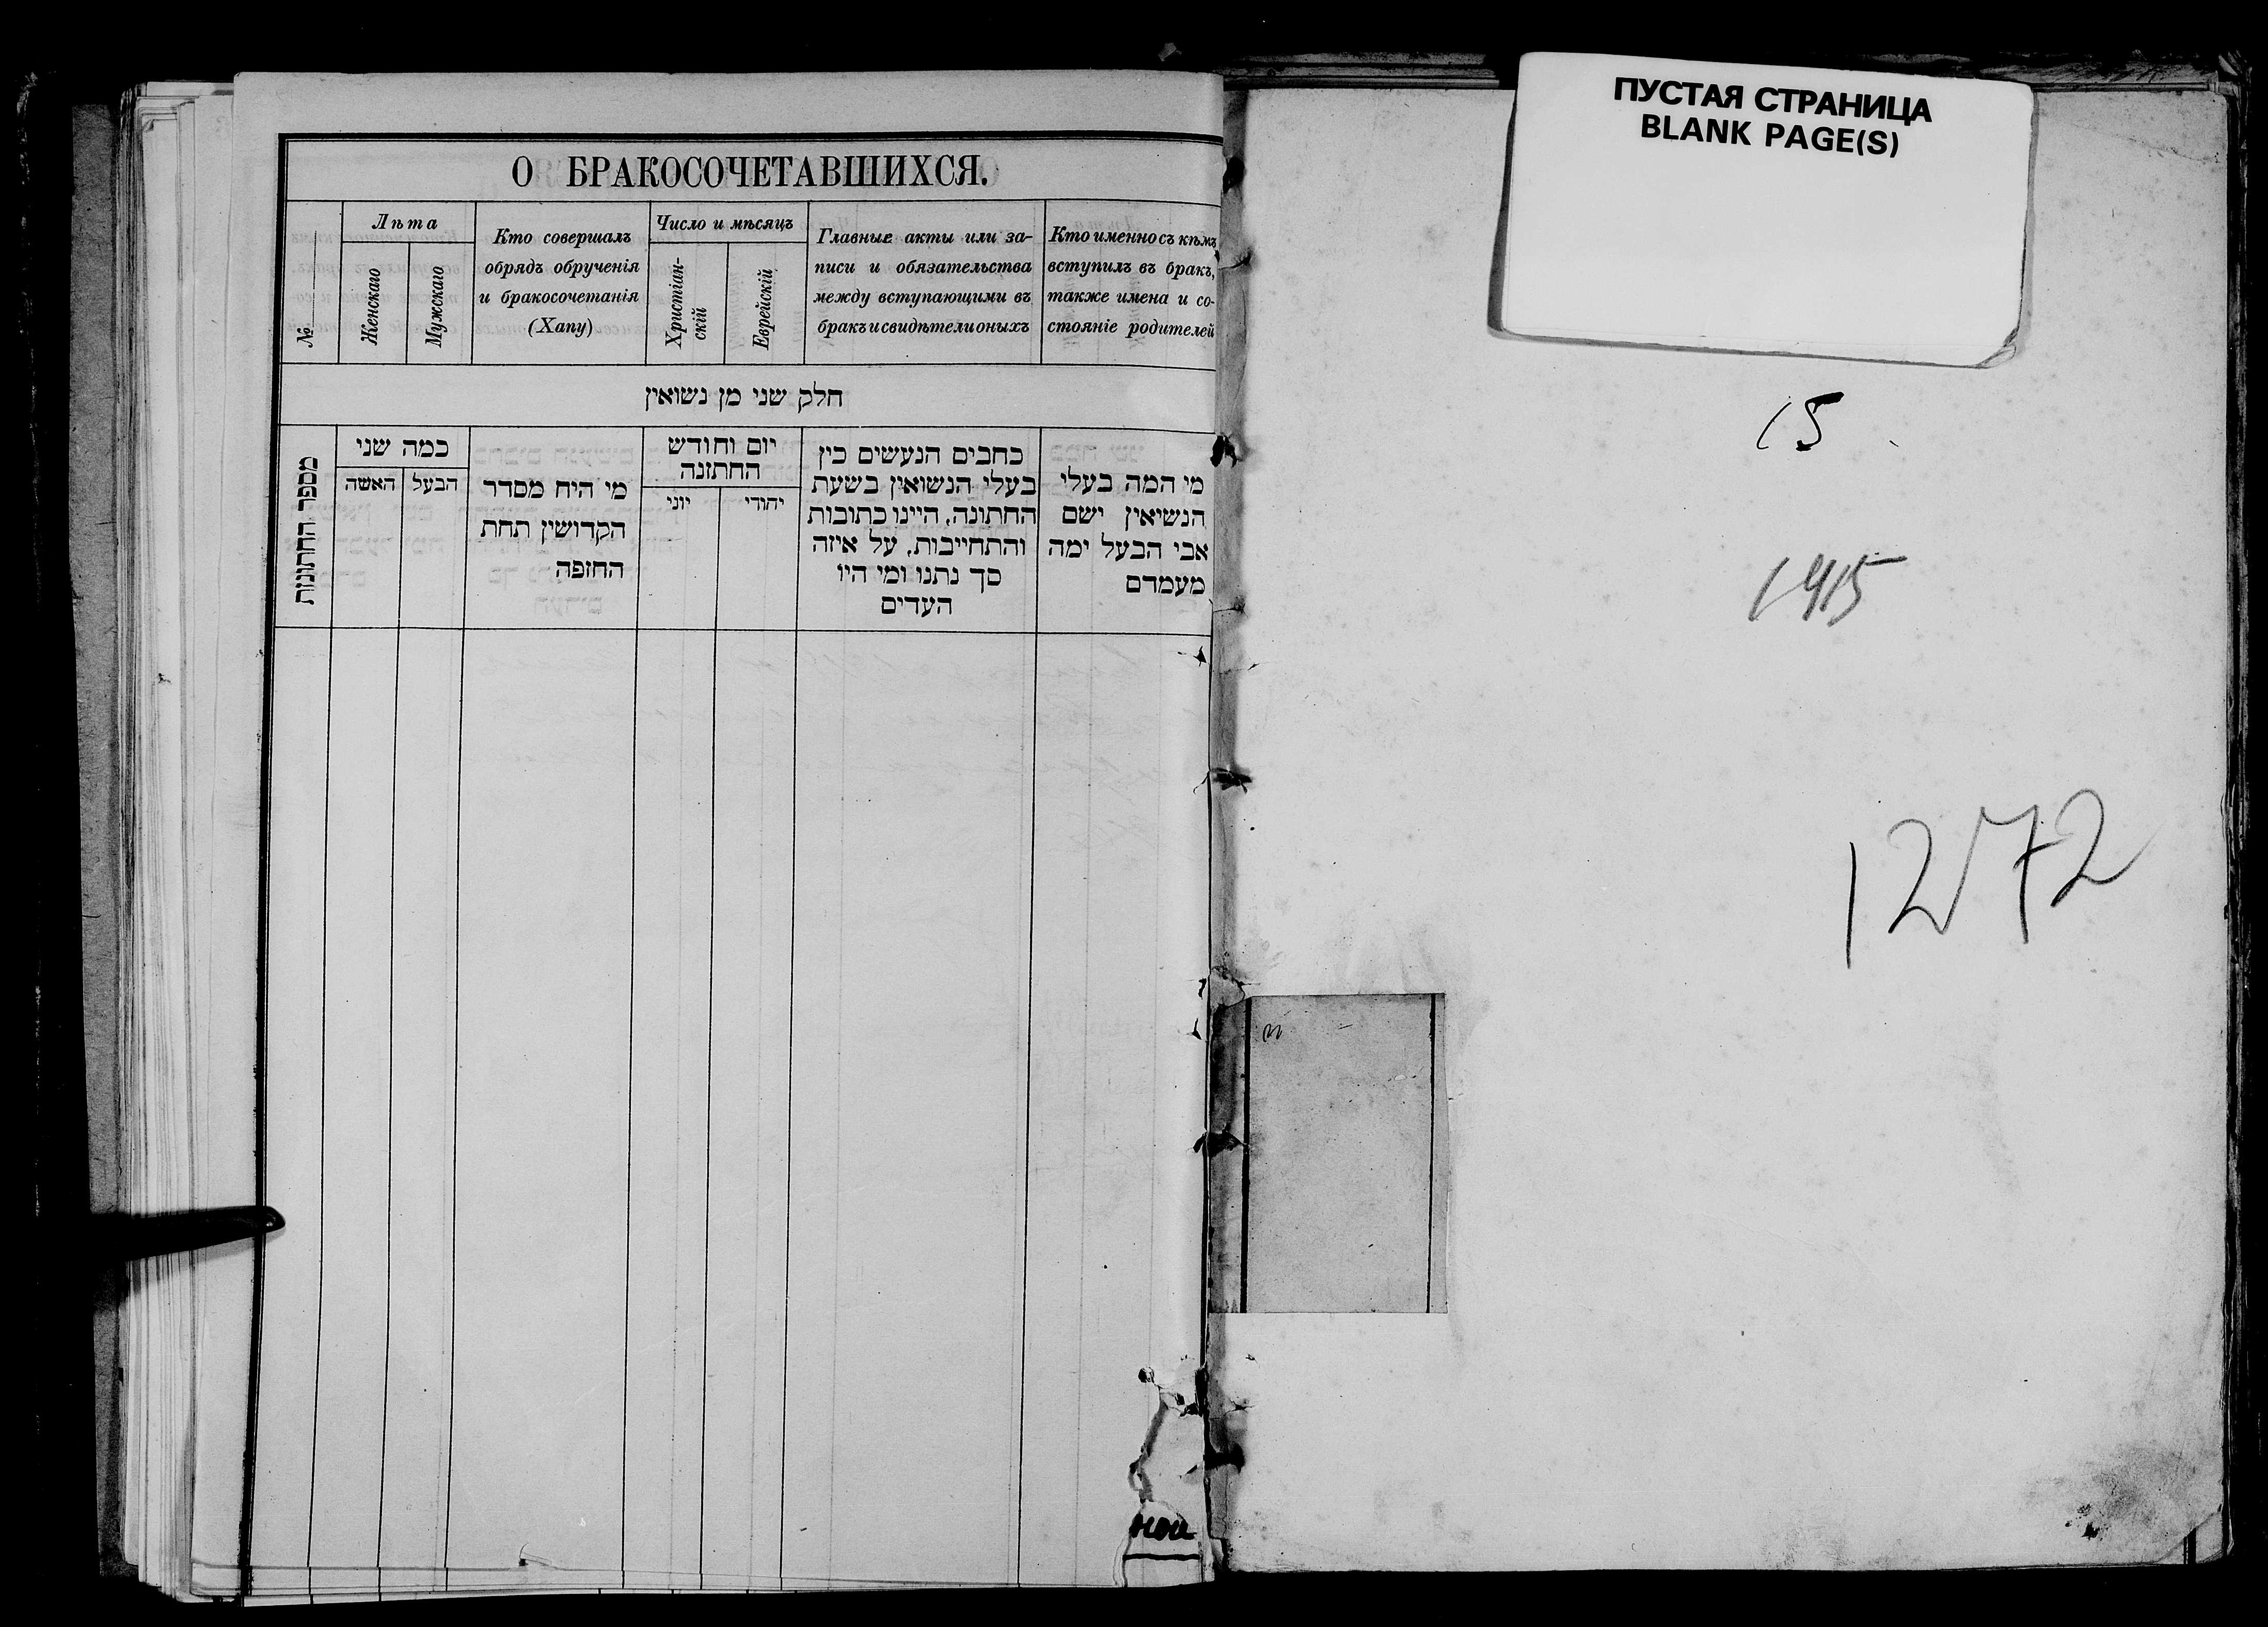 О БРАКОСОЧЕТАВШИХСЯ.
№
Лѣта
Женскаго
Мужскаго
Кто совершалъ
обрядъ обрученія
и бракосочетанія
(Хапу)
Число и мѣсяцъ
Христіан-
скій
Еврейскій
Главные акты или за-
писи и обязательства
между вступающими въ
бракъ и свидѣтели оныхъ
Кто именно съ кѣмъ
вступилъ въ бракъ,
также имена и со-
стояніе родителей
חלק שני מן נשואין
מספר החתונות
כמה שני
האשה
הבעל
מי היח מסדר
הקדושין תחת
החופה
יום וחודש
החתונה
יוני
יהודי
כחבים הנעשים כין
בעלי הנשואין בשעת
החתונה, היינו כתובות
והתחייבות, על איזה
סך נתנו ומי היו
העדים
מי המה בעלי
הנשיאין ישם
אבי הבעל ימה
מעמדם
ной
ПУСТАЯ СТРАНИЦА
BLANK PAGE(S)
15
1915
1272